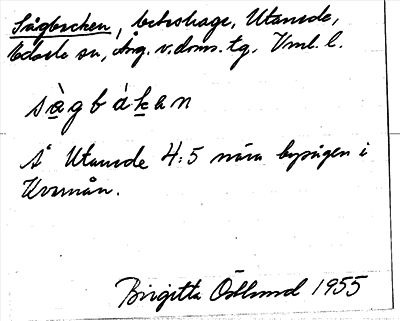 Sågbacken, beteshage, Utanede,
Edsele sn, Ång. v. doms. tg. Vml. l.
sàgbákan
Å Utanede 4:5 nära bysågen i
Kvarnån.
Birgitta Östlund 1955